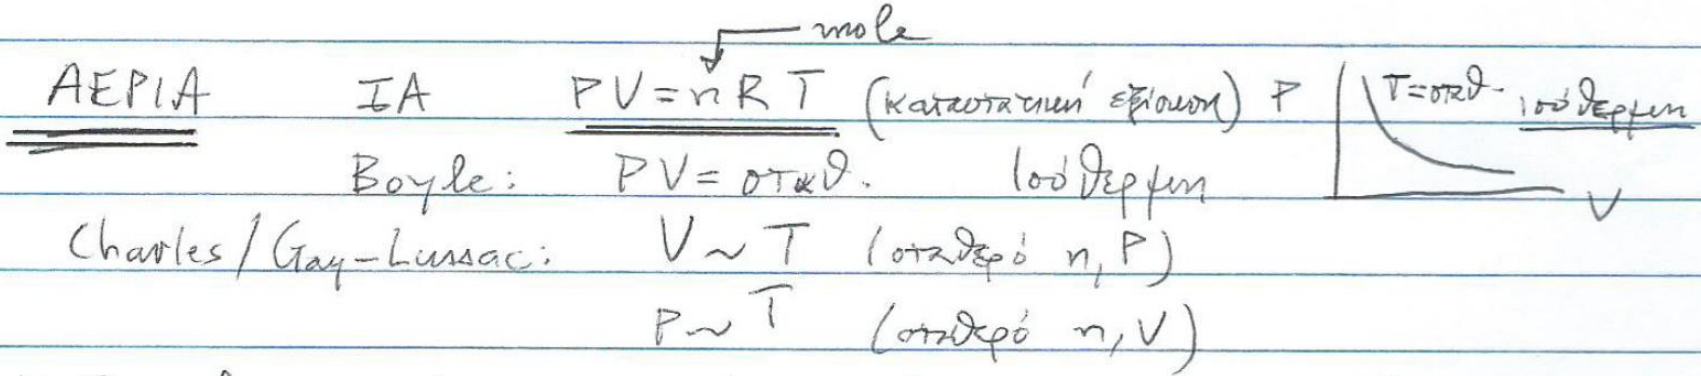 mole
ΑΕΡΙΑ ΙΑ PV=nRT (καταστατική εξίσωση) P T=σταθ. ισόθερμη
Boyle: PV= σταθ. Ισόθερμη V
Charles/Gay-Lussac: V~T (σταθερό n, P)
P~T (σταθερό n, V)